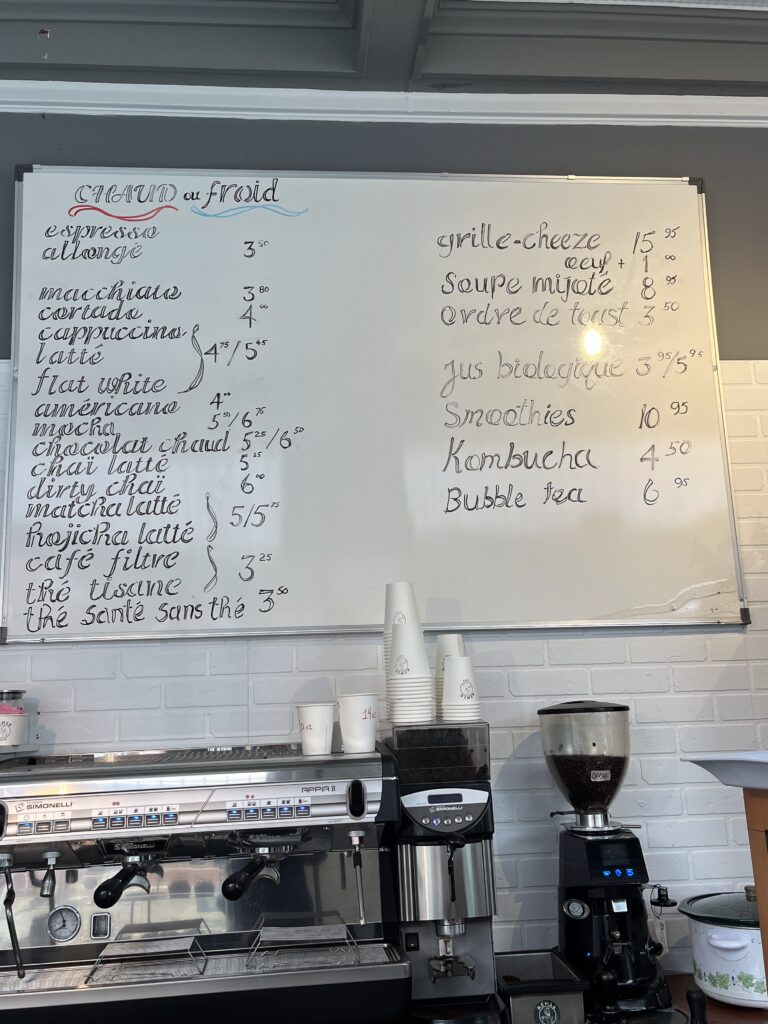 CHAUD ou froid
espresso
allongé 3 50
macchiato 3 80
cortado 4 00
cappuccino
latté 4 75 / 5 45
flat white
américano 4 00
mocha 5 50 / 6 75
chocolat chaud 5 25 / 6 50
chaï latté 5 25
dirty chaï 6 00
matcha latté
hojicha latté 5 / 5 75
café filtre
thé tisane 3 25
thé santé sans thé 3 50
grille-cheeze 15 95
oeuf + 1 00
Soupe mijoté 8 95
ordre de toast 3 50
jus biologique 3 95 / 5 95
Smoothies 10 95
Kombucha 4 50
Bubble tea 6 95
14oz
SIMONELLI
APPIA II
SIMONELLI
DECAF